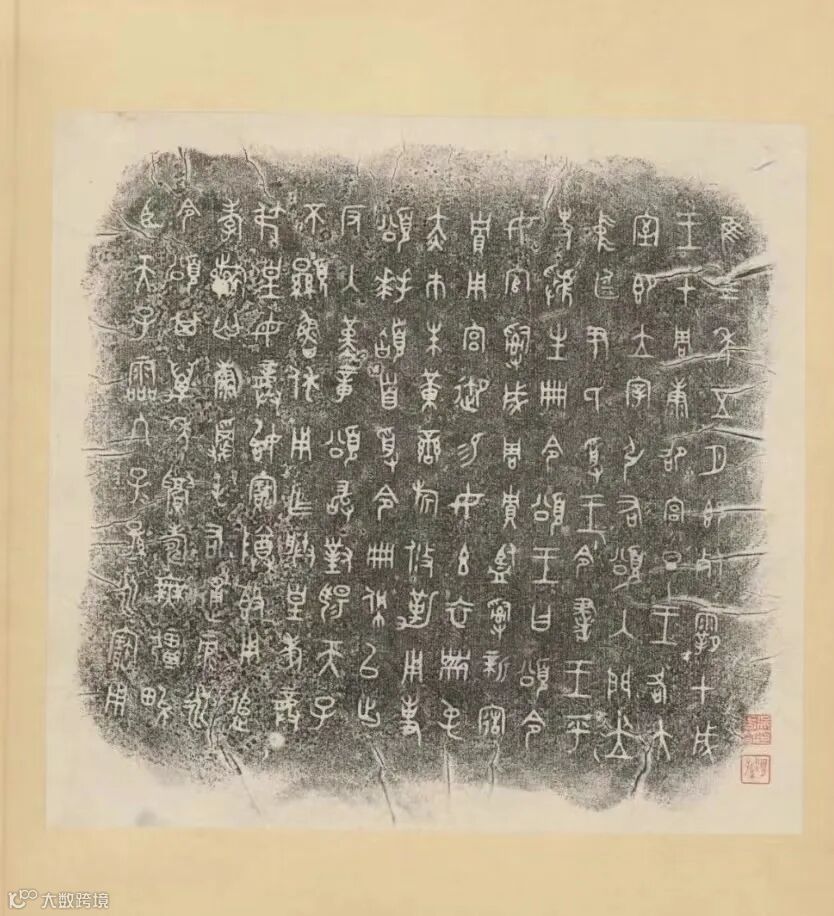 隹三年五月既死霸甲戌
王才周康卲宮旦王各大
室即立宰引右頌入門立
中廷尹氏受王令書王乎
史虢生冊令頌王曰頌令
女官𤔲成周賈監𤔲新造
賈用宮御易女玄衣黹屯
赤巿朱黃鑾旂攸勒用事
頌拜𩒨首受令冊佩以出
反入堇章頌敢對揚天子
不顯魯休用乍朕皇考龏
弔皇母龏始寶尊鼎用追
孝祈匄康𩃬屯右通彔永
令頌其萬年眉壽無疆畯
臣天子霝冬子孫永寶用
大数跨境